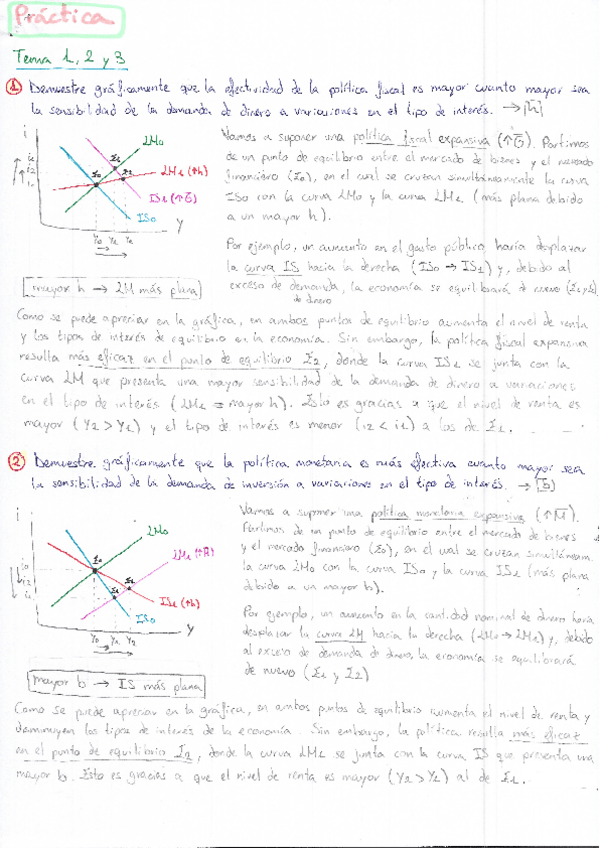 Práctica
Tema 1, 2 y 3
① Demuestre gráficamente que la efectividad de la política fiscal es mayor cuanto mayor sea
la sensibilidad de la demanda de dinero a variaciones en el tipo de interés. → [h]
i
LM0
E1
LM1 (↑h)
i1
i2
i0
E2
E0
IS1 (↑G)
IS0
Y
Y0 Y1 Y2
mayor h → LM más plana
Vamos a suponer una política fiscal expansiva (↑G). Partimos
de un punto de equilibrio entre el mercado de bienes y el mercado
financiero (E0), en el cual se cruzan simultáneamente la curva
IS0 con la curva LM0 y la curva LM1 (más plana debido
a un mayor h).
Por ejemplo, un aumento en el gasto público haría desplazar
la curva IS hacia la derecha (IS0 → IS1) y, debido al
exceso de demanda, la economía se equilibrará de nuevo (E1 y E2).
de dinero
Como se puede apreciar en la gráfica, en ambos puntos de equilibrio aumenta el nivel de renta
y los tipos de interés de equilibrio en la economía. Sin embargo, la política fiscal expansiva
resulta más eficaz en el punto de equilibrio E2, donde la curva IS1 se junta con la
curva LM que presenta una mayor sensibilidad de la demanda de dinero a variaciones
en el tipo de interés (LM1 = mayor h). Esto es gracias a que el nivel de renta es
mayor (Y2 > Y1) y el tipo de interés es menor (i2 < i1) a los de E1.
② Demuestre gráficamente que la política monetaria es más efectiva cuanto mayor sea
la sensibilidad de la demanda de inversión a variaciones en el tipo de interés. → [b]
i
LM0
E0
LM1 (↑M)
i0
i2
i1
E2
E1
IS1 (↑b)
IS0
Y
Y0 Y1 Y2
mayor b → IS más plana
Vamos a suponer una política monetaria expansiva (↑M).
Partimos de un punto de equilibrio entre el mercado de bienes
y el mercado financiero (E0), en el cual se cruzan simultáneam.
la curva LM0 con la curva IS0 y la curva IS1 (más plana
debido a un mayor b).
Por ejemplo, un aumento en la cantidad nominal de dinero haría
desplazar la curva LM hacia la derecha (LM0 → LM1) y, debido
al exceso de demanda de dinero, la economía se equilibrará
de nuevo (E1 y E2)
Como se puede apreciar en la gráfica, en ambos puntos de equilibrio aumenta el nivel de renta y
disminuyen los tipos de interés de la economía. Sin embargo, la política resulta más eficaz
en el punto de equilibrio E2, donde la curva LM1 se junta con la curva IS que presenta una
mayor b. Esto es gracias a que el nivel de renta es mayor (Y2 > Y1) al de E1.